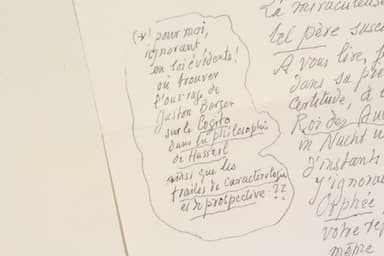 (*) pour moi,
ignorant
en soi évidents!
où trouver
l'ouvrage de
Gaston Berger
sur le Cogito
dans la philosophie
de Husserl
ainsi que les
traités de caractérologie
et de prospective ??
La miraculeuse
tel père
A vous lire,
dans sa
certitude, à
Roi des
in Nacht
d'instants
j'ignorai
Orphée
votre
même